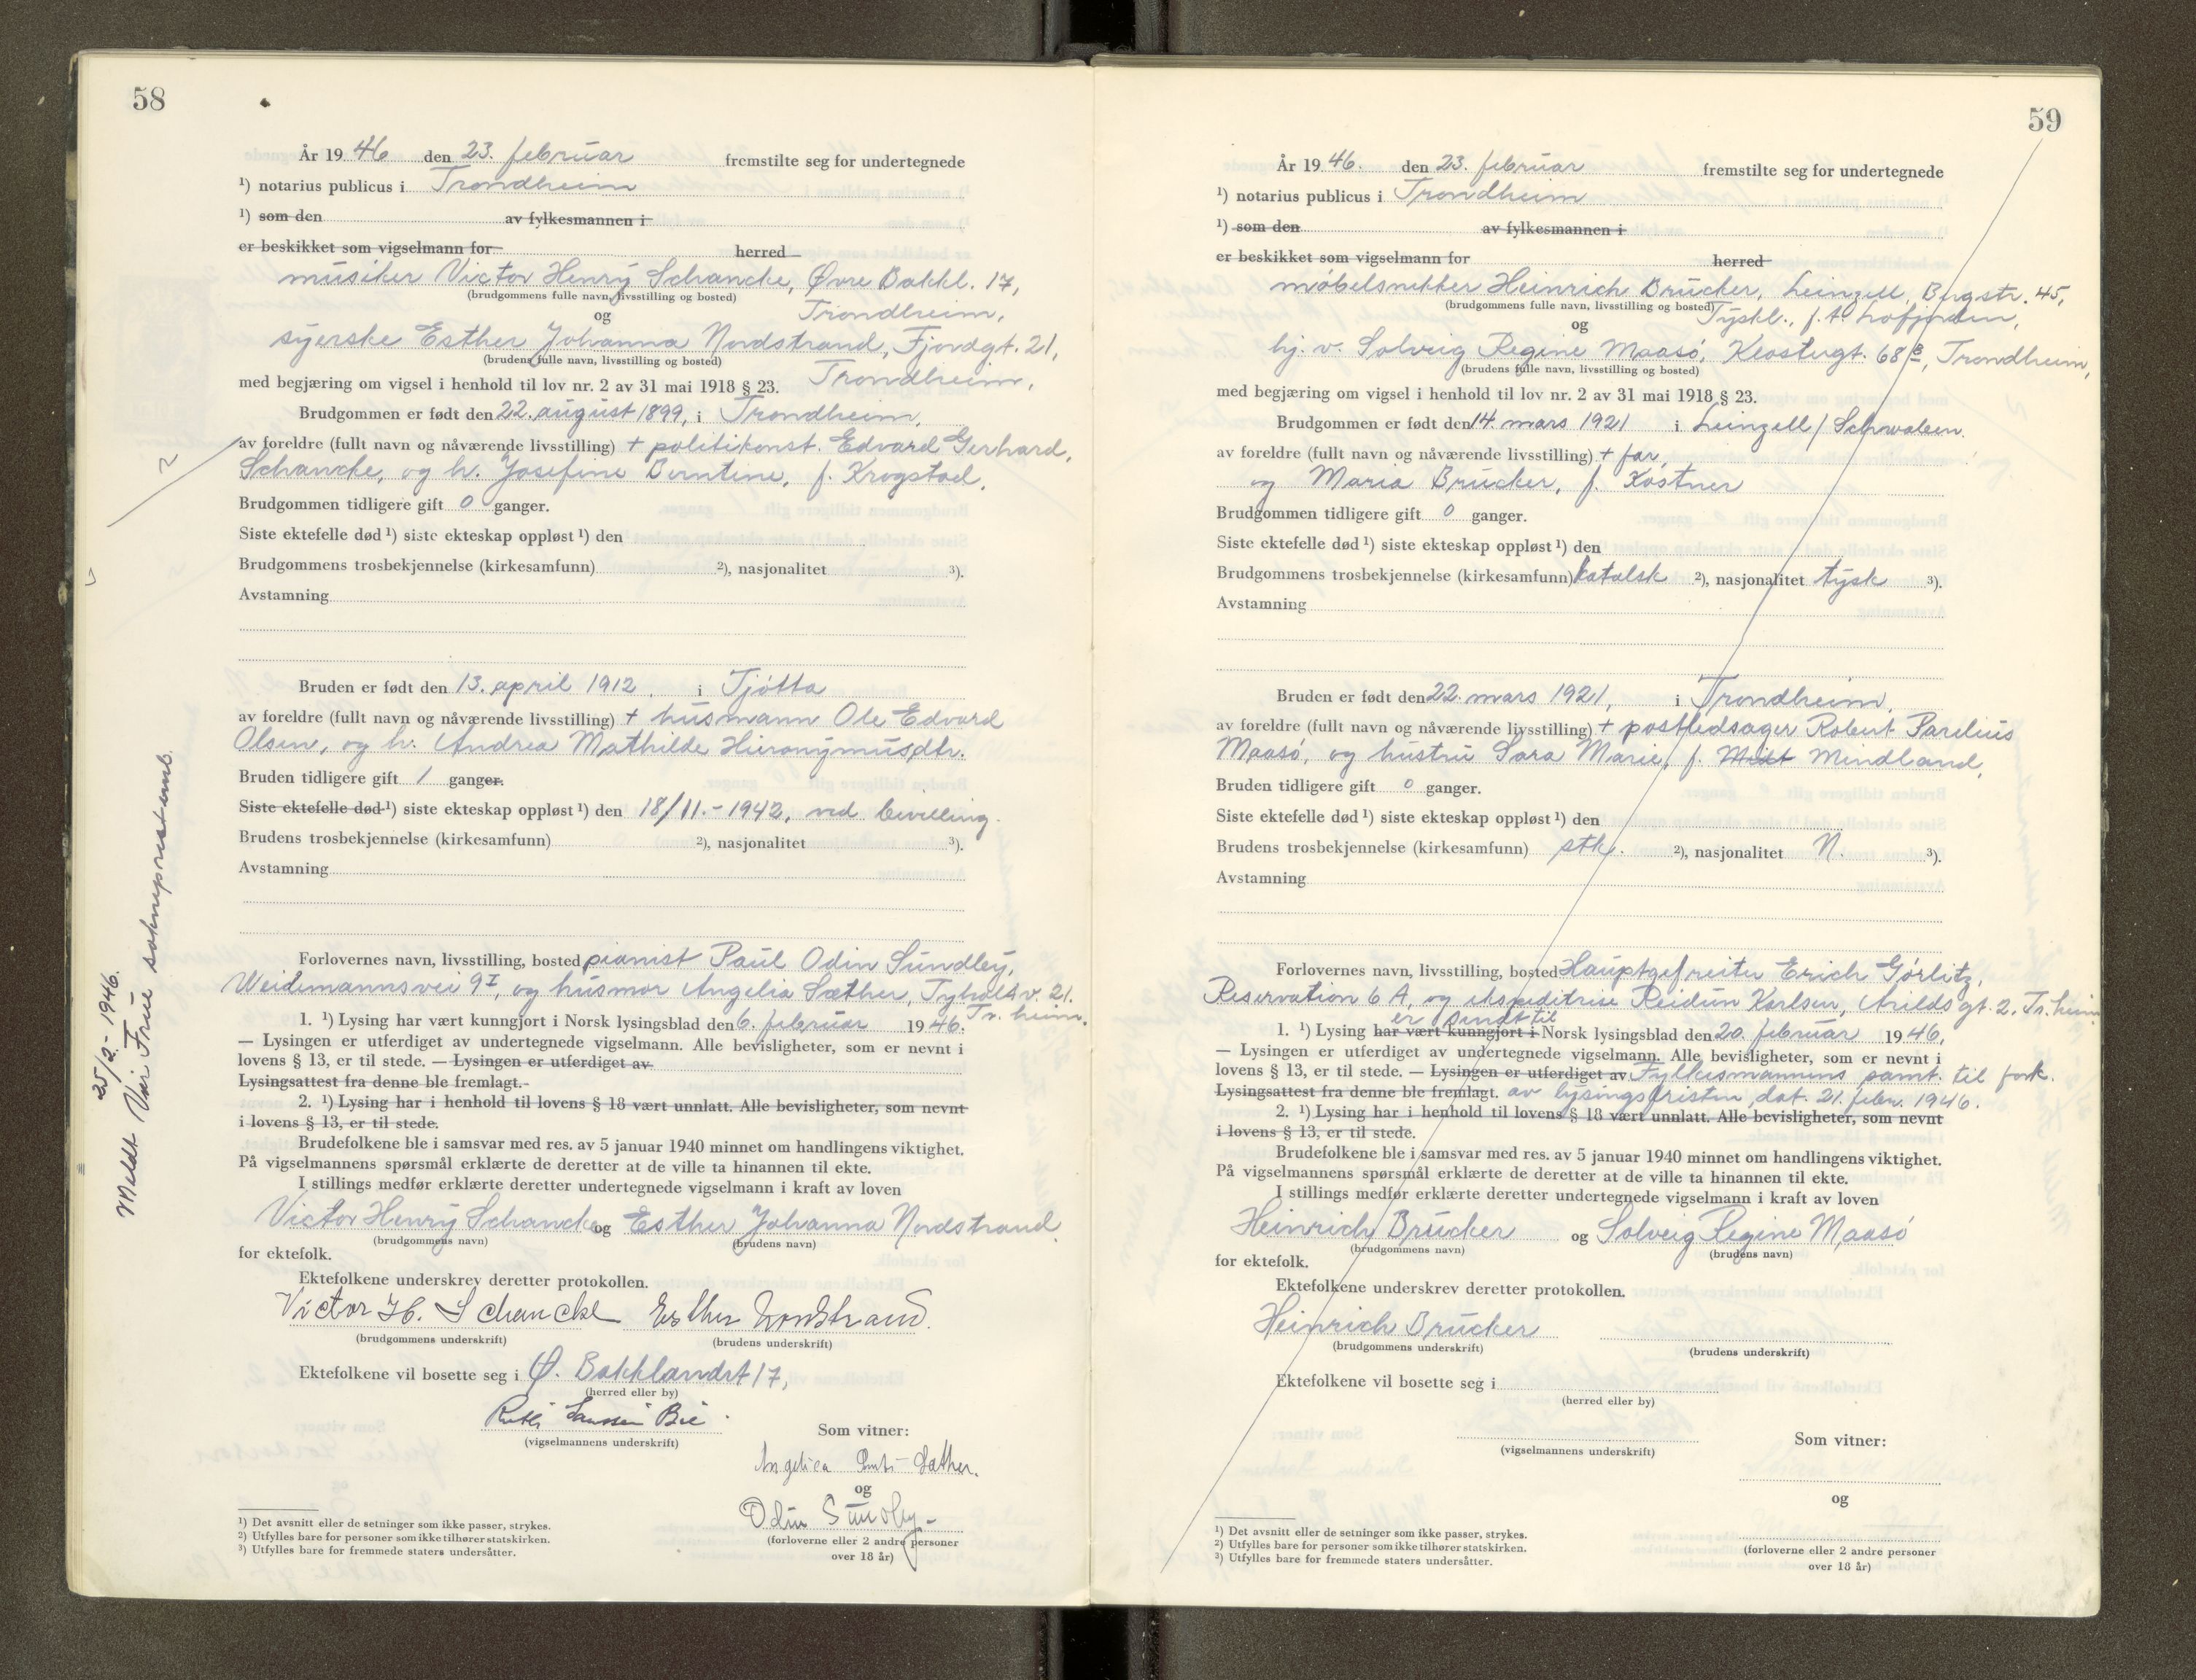 58
År 19 46 den 23. februar fremstilte seg for undertegnede
¹) notarius publicus i Trondheim
¹) som den av fylkesmannen i
er beskikket som vigselmann for herred
musiker Victor Henry Schancke, Øvre Bakkl. 17,
(brudgommens fulle navn, livsstilling og bosted)
og Trondheim,
syerske Esther Johanna Nordstrand, Fjordgt. 21,
(brudens fulle navn, livsstilling og bosted)
med begjæring om vigsel i henhold til lov nr. 2 av 31 mai 1918 § 23. Trondheim,
Brudgommen er født den 22. august 1899, i Trondheim,
av foreldre (fullt navn og nåværende livsstilling) + politikonst. Edvard Gerhard
Schancke, og h. Josefine Berntine, f. Krogstad,
Brudgommen tidligere gift 0 ganger.
Siste ektefelle død ¹) siste ekteskap oppløst ¹) den
Brudgommens trosbekjennelse (kirkesamfunn) ²), nasjonalitet ³).
Avstamning
Bruden er født den 13. april 1912, i Tjøtta
av foreldre (fullt navn og nåværende livsstilling) + husmann Ole Edvard
Olsen, og h. Andrea Mathilde Hieronymusdtr.
Bruden tidligere gift 1 ganger.
Siste ektefelle død ¹) siste ekteskap oppløst ¹) den 18/11.-1942, ved bevilling.
Brudens trosbekjennelse (kirkesamfunn) ²), nasjonalitet ³).
Avstamning
Forlovernes navn, livsstilling, bosted pianist Paul Odin Sundley,
Weidemannsvei 9 I, og husmor Angelia Sæther, Tyholt v. 21.
Tr.heim.
1. ¹) Lysing har vært kunngjort i Norsk lysingsblad den 6. februar 1946.
— Lysingen er utferdiget av undertegnede vigselmann. Alle bevisligheter, som er nevnt i
lovens § 13, er til stede. — Lysingen er utferdiget av
Lysingsattest fra denne ble fremlagt.
2. ¹) Lysing har i henhold til lovens § 18 vært unnlatt. Alle bevisligheter, som nevnt
i lovens § 13, er til stede.
Brudefolkene ble i samsvar med res. av 5 januar 1940 minnet om handlingens viktighet.
På vigselmannens spørsmål erklærte de deretter at de ville ta hinannen til ekte.
I stillings medfør erklærte deretter undertegnede vigselmann i kraft av loven
Victor Henry Schancke og Esther Johanna Nordstrand
(brudgommens navn) (brudens navn)
for ektefolk.
Ektefolkene underskrev deretter protokollen.
Victor H. Schancke Esther Nordstrand.
(brudgommens underskrift) (brudens underskrift)
Ektefolkene vil bosette seg i Ø. Bakklandet 17,
(herred eller by)
(vigselmannens underskrift)
Som vitner:
Angelica Sather.
og
Odin Sundby
(forloverne eller 2 andre personer
over 18 år)
¹) Det avsnitt eller de setninger som ikke passer, strykes.
²) Utfylles bare for personer som ikke tilhører statskirken.
³) Utfylles bare for fremmede staters undersåtter.
25/2-1946.
Meldt Vår Frue sokneprestemb.
59
År 19 46. den 23. februar fremstilte seg for undertegnede
¹) notarius publicus i Trondheim
¹) som den av fylkesmannen i
er beskikket som vigselmann for herred
møbelsnekker Heinrich Brücker, Leinzell, Bergstr. 45,
(brudgommens fulle navn, livsstilling og bosted)
og Tyskl., f.t. Lofjorden,
hj. v. Solveig Regine Maasø, Klostergt. 68 B, Trondheim,
(brudens fulle navn, livsstilling og bosted)
med begjæring om vigsel i henhold til lov nr. 2 av 31 mai 1918 § 23.
Brudgommen er født den 14. mars 1921 i Leinzell / Schwaben.
av foreldre (fullt navn og nåværende livsstilling) + far,
og Maria Brücker, f. Kostner
Brudgommen tidligere gift 0 ganger.
Siste ektefelle død ¹) siste ekteskap oppløst ¹) den
Brudgommens trosbekjennelse (kirkesamfunn) katolsk ²), nasjonalitet tysk ³).
Avstamning
Bruden er født den 22. mars 1921, i Trondheim,
av foreldre (fullt navn og nåværende livsstilling) + postledsager Robert Parelius
Maasø, og hustru Sara Marie, f. Mindland,
Bruden tidligere gift 0 ganger.
Siste ektefelle død ¹) siste ekteskap oppløst ¹) den
Brudens trosbekjennelse (kirkesamfunn) stk. ²), nasjonalitet N. ³).
Avstamning
Forlovernes navn, livsstilling, bosted Hauptgefreiter Erich Görlitz,
Reservation 6 A, og ekspeditrise Reidun Karlsen, Arilds gt. 2, Tr.heim
er sendt til
1. ¹) Lysing har vært kunngjort i Norsk lysingsblad den 20. februar 1946,
— Lysingen er utferdiget av undertegnede vigselmann. Alle bevisligheter, som er nevnt i
lovens § 13, er til stede. — Lysingen er utferdiget av Fylkesmannens samt. til fork.
Lysingsattest fra denne ble fremlagt. av lysingsfristen, dat. 21. febr. 1946.
2. ¹) Lysing har i henhold til lovens § 18 vært unnlatt. Alle bevisligheter, som nevnt
i lovens § 13, er til stede.
Brudefolkene ble i samsvar med res. av 5 januar 1940 minnet om handlingens viktighet.
På vigselmannens spørsmål erklærte de deretter at de ville ta hinannen til ekte.
I stillings medfør erklærte deretter undertegnede vigselmann i kraft av loven
Heinrich Brücker og Solveig Regine Maasø
(brudgommens navn) (brudens navn)
for ektefolk.
Ektefolkene underskrev deretter protokollen.
Heinrich Brücker
(brudgommens underskrift) (brudens underskrift)
Ektefolkene vil bosette seg i
(herred eller by)
(vigselmannens underskrift)
Som vitner:
og
(forloverne eller 2 andre personer
over 18 år)
¹) Det avsnitt eller de setninger som ikke passer, strykes.
²) Utfylles bare for personer som ikke tilhører statskirken.
³) Utfylles bare for fremmede staters undersåtter.